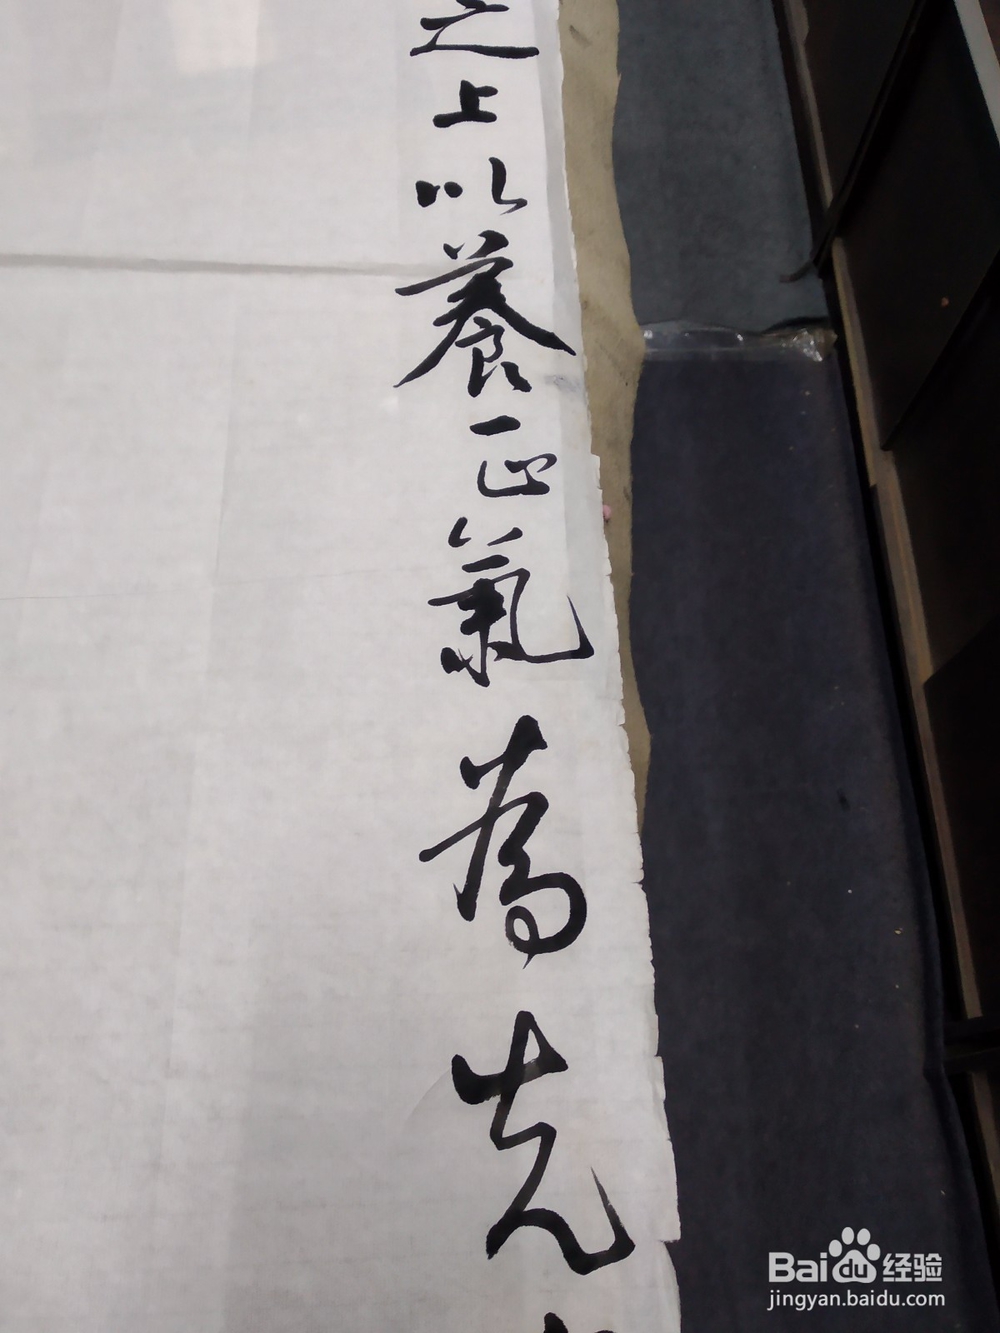 之上以養正氣為先
Bai du 经验
jingyan.baidu.com